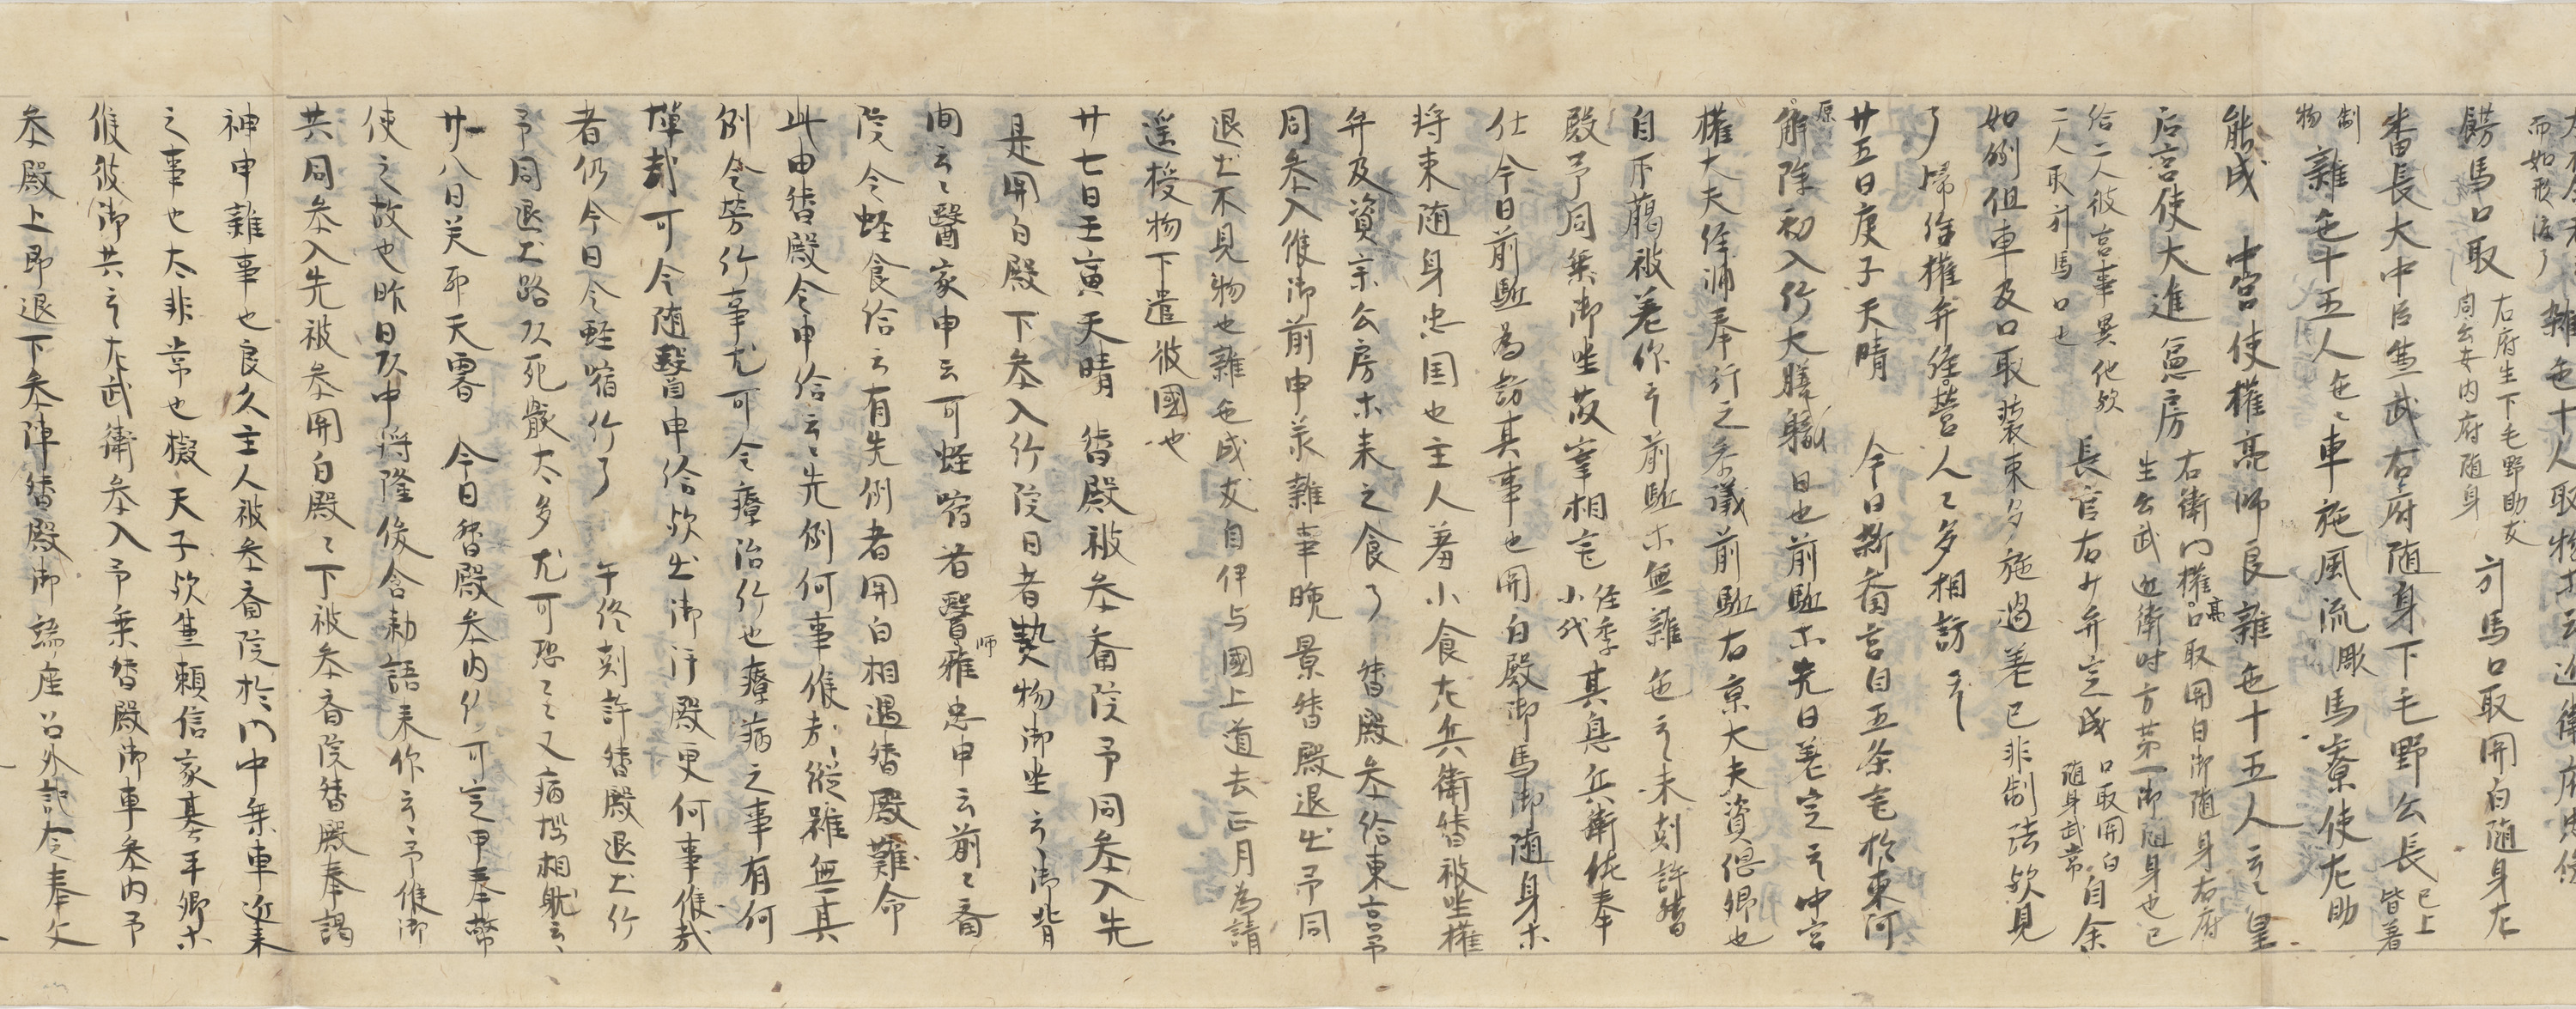 而如形渡了 雑色十人取物
餝馬口取 右府生下毛野助友 同公安内府随身 引馬口取関白随身左
番長大中臣兼武右府随身下毛野公長 已上皆着
制物 雑色十五人色々車施風流彫馬寮使左助
能成 中宮使権亮師良雑色十五人云々皇
后宮使大進憲房 右衛門権亮口取関白御随身右府生公武近衛時方第一御随身也已
給二人彼宮事異他歟 二人取引馬口也 長官右少弁定成 口取関白随身武常 自余
如例但車及口取装束多施過差已非制法歟見
了帰侍権弁経営人々多相訪了
廿五日庚子天晴 今日斎宮自五条宅於東河
原解除初入行大膳職日也前駈等先日差定云中宮
権大夫経補奉行之参議前駈右京大夫資信卿也
自下臈被差作云前駈等無雑色云々未剋許督
殿予同乗御坐故宰相宅 経季小代 其息兵衛佐奉
仕今日前駈為訪其事也関白殿御馬御随身等
将束随身忠国也主人羞小食左兵衛督被坐権
弁及資宗公房等来之食了 督殿参給東宮予
同参入候御前申承雑事晩景督殿退出予同
退出不見物也雑色成友自伊与國上道去正月為請
遥授物下遣彼國也
廿七日壬寅天晴 督殿被参斎院予同参入先
是関白殿下参入行院日者熱物御坐云々御背
間云々醫家申云可蛭喰者醫師雅忠申云前々斎
院令蛭食給云有先例者関白相遇督殿難命
此由督殿令申給云先例何事候哉縦雖無其
例令勞行事尤可令療治行也療病之事有何
憚哉可令随醫申給歟出御汗殿更何事候哉
者仍今日令蛭喰行了 午終剋許督殿退出行
予同退出路頭死骸太多尤可恐々々又病悩相馳云々
廿八日癸卯天霽 今日督殿参内行可定申奉幣
使之故也昨日頭中将隆俊含勅語来作云々予候御
共同参入先被参関白殿々下被参斎院督殿奉謁
神申雑事也良久主人被参斎院於門中乗車近来
之事也太非常也擬天子歟兼頼信家基平卿等
候彼御共云々左武衛参入予乗督殿御車参内予
参殿上即退下参陣督殿御端座召外記令奉文